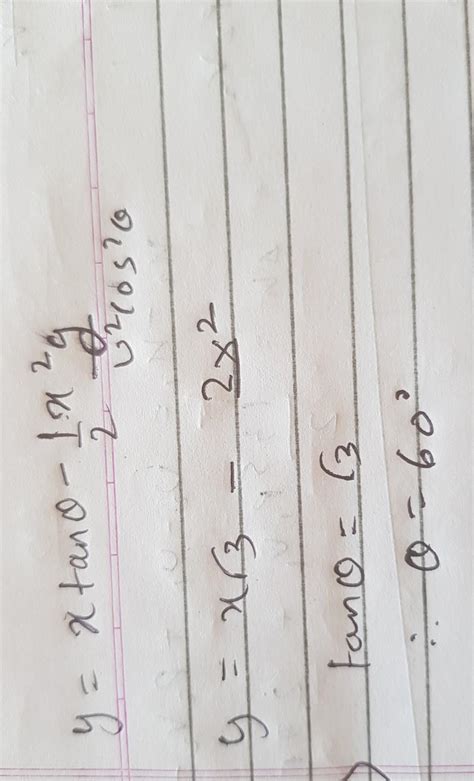 y = x tanθ - 1/2 x²g / u²cos²θ
y = x√3 - 2x²
tanθ = √3
∴ θ = 60°